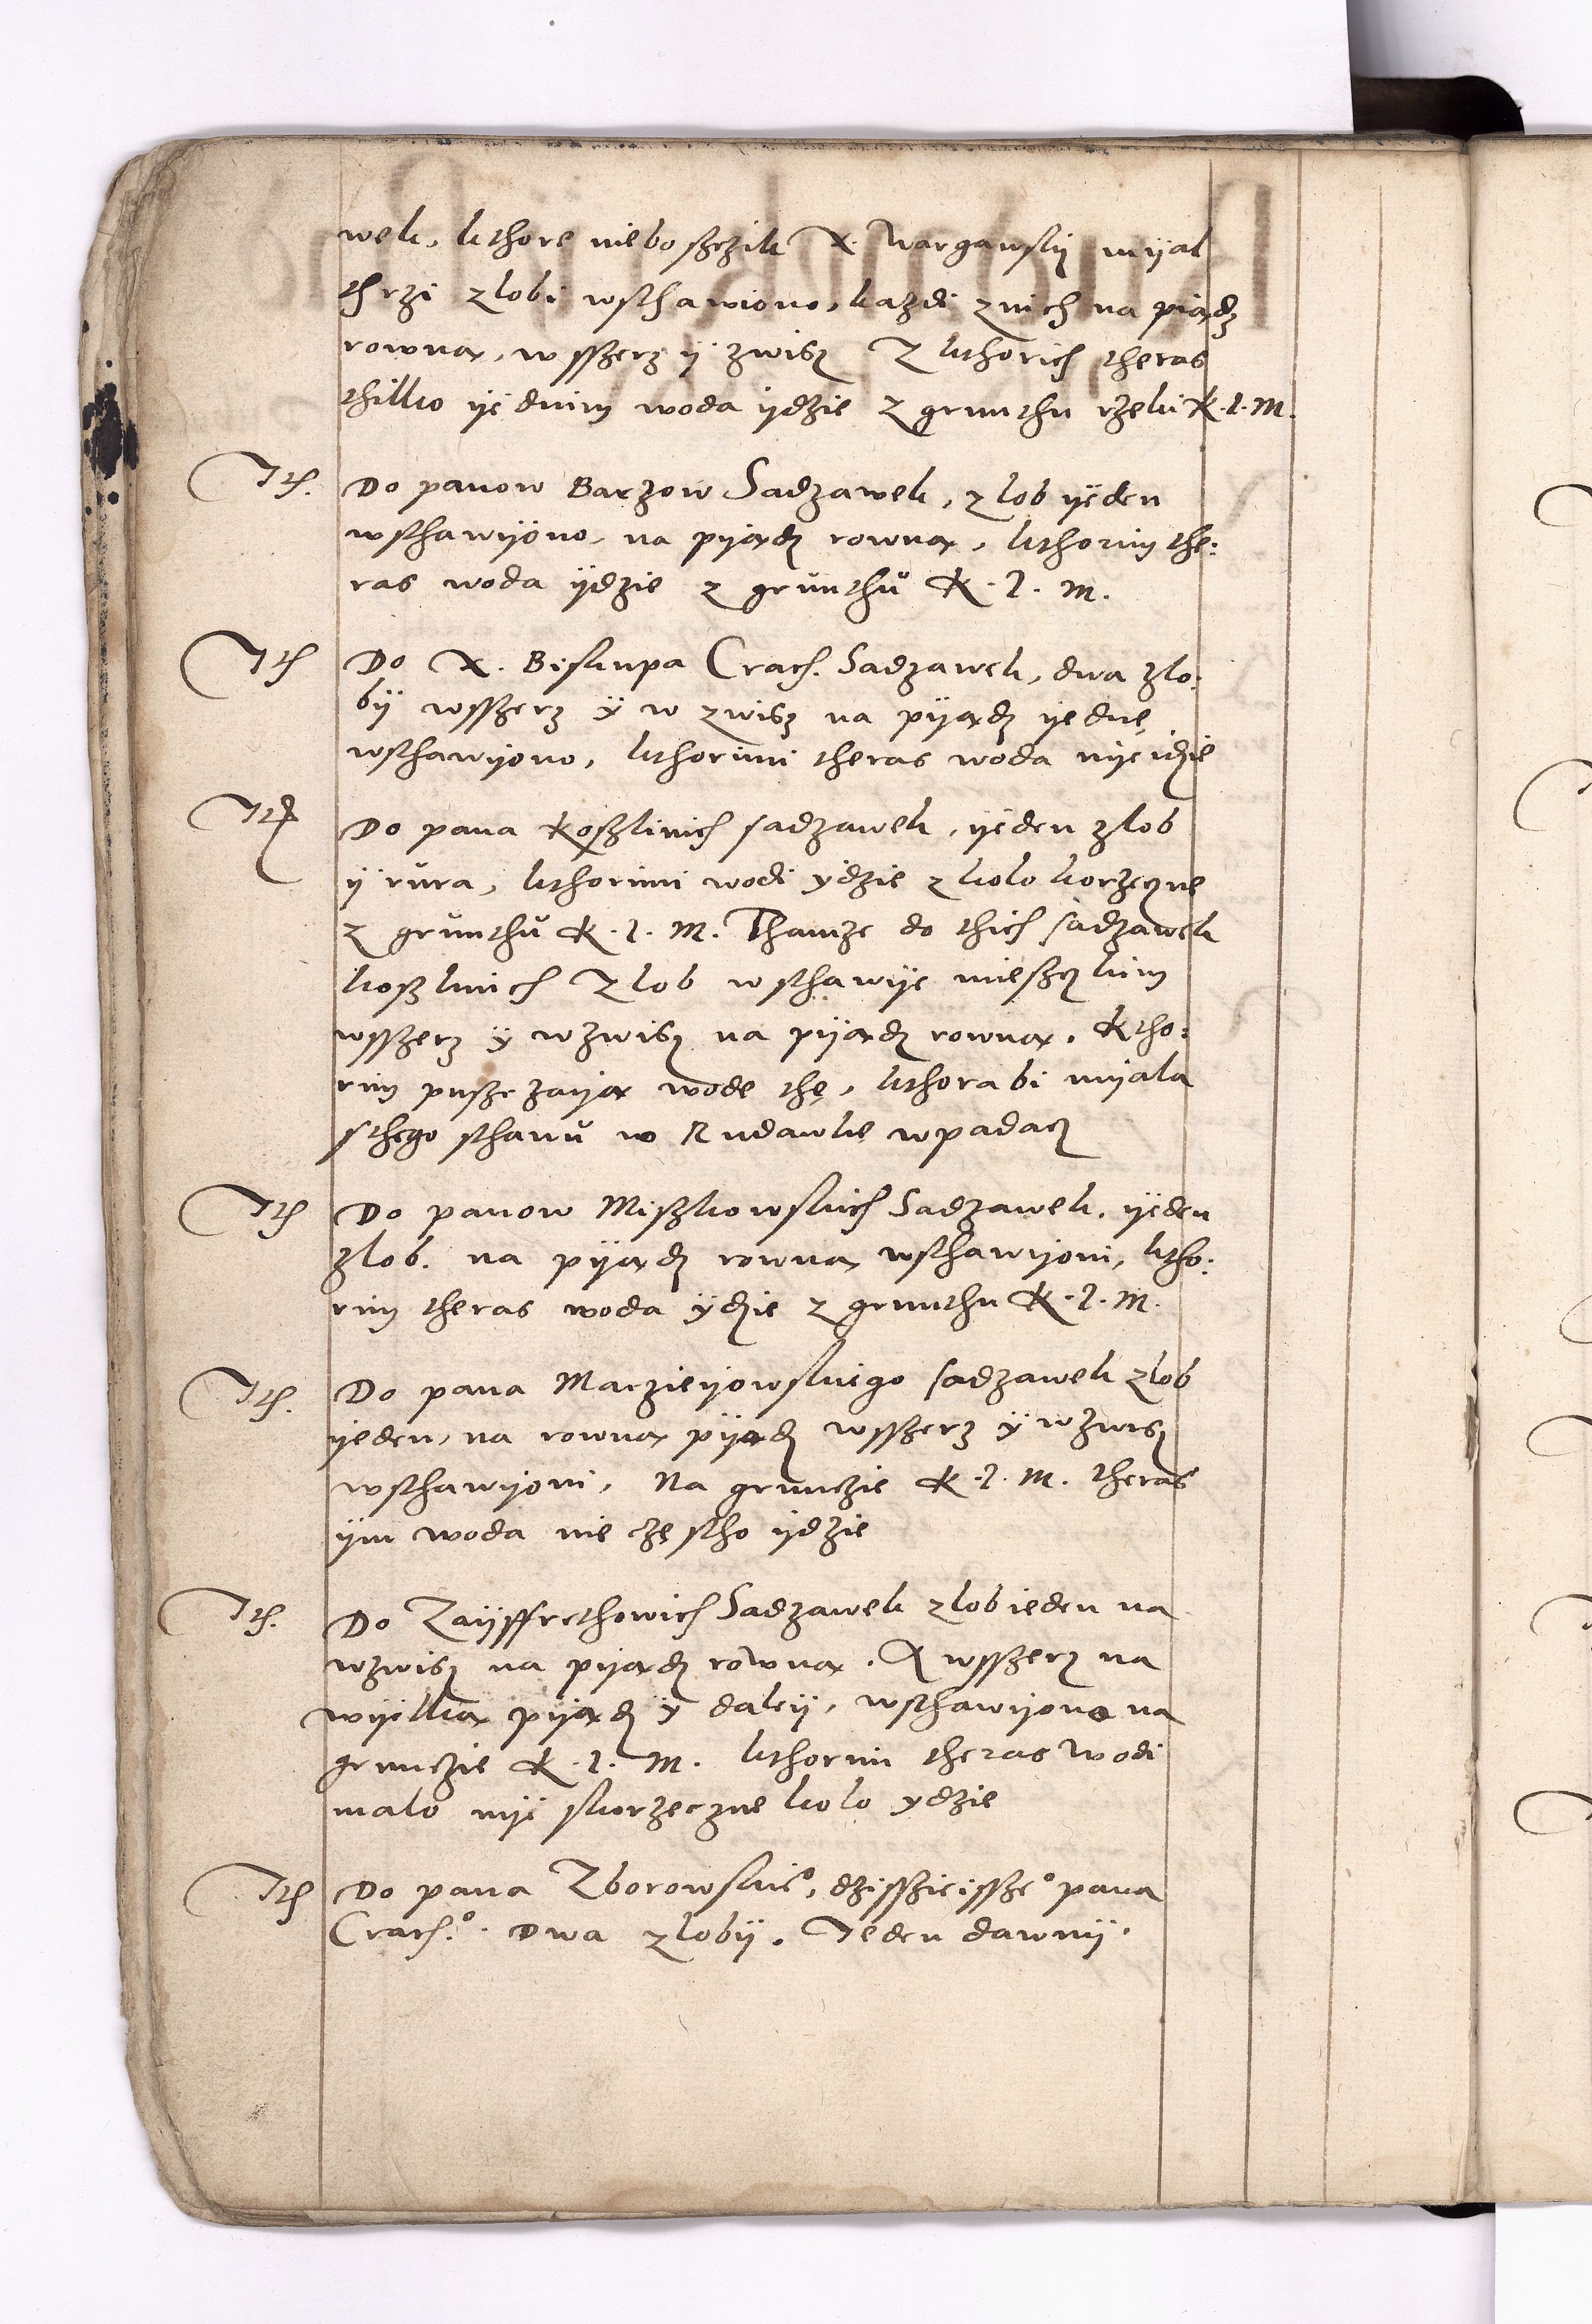 wek, kthore nieboszczik X. Wargawskÿ mÿal
thrzi zlobi wsthawiono, kazdi znich na piądz
rowną, w sszerz ÿ zwisz Z kthorich theras
thilko ÿednim woda ÿdzie z grunthu rzeki K. J. M.
Ith. Do panow Barzow Sadzawek, zlob ÿeden
wsthawÿono, na pÿądz rowną, kthorim the:
ras woda ÿdzie z grunthu K. J. M.
Ith Do X. Biskupa Crach. Sadzawek, dwa zlo:
bÿ wsszerz ÿ w zwisz na pÿądz ÿednę
wsthawÿono, kthorimi theras woda nÿe idzie
Ith Do pana Koszlinich sadzawek, ÿeden zlob
ÿ rura, kthorimi wodi ÿdzie z kolo korzeczne
z grunthu K. J. M. Thamze do thich sadzawek
koszlinich Zlob wsthawÿe mieszkim
wsszerz ÿ wzwisz na pÿądz rowną. Ktho:
rim puszczaÿą wode thę, kthora bi mÿala
sthego sthawu w Rudawke wpadacz
Ith Do panow Miszkowskich Sadzawek, ÿeden
zlob. na pÿądz rowną wsthawÿoni, ktho:
rim theras woda ÿdzie z grunthu K. J. M.
Ith. Do pana Marzieÿowskiego sadzawek zlob
ÿeden, na rowną pÿądz wsszerz ÿ wzwisz
wsthawÿoni, Na grunczie K. J. M. theras
ÿm woda nie czestho ÿdzie
Ith. Do Zaÿffrethowich Sadzawek zlob ieden na
wzwisz na pÿądz rowną. A wsszerz na
wÿelką pÿądz ÿ daleÿ, wsthawÿono na
grunczie K. J. M. kthorim theras Wodi
malo nÿe skorzeczne kolo ÿdzie
Ith Do pana Zborowskie°, dzisszieissze° pana
Crach.° Dwa zlobÿ. Jeden dawnÿ.